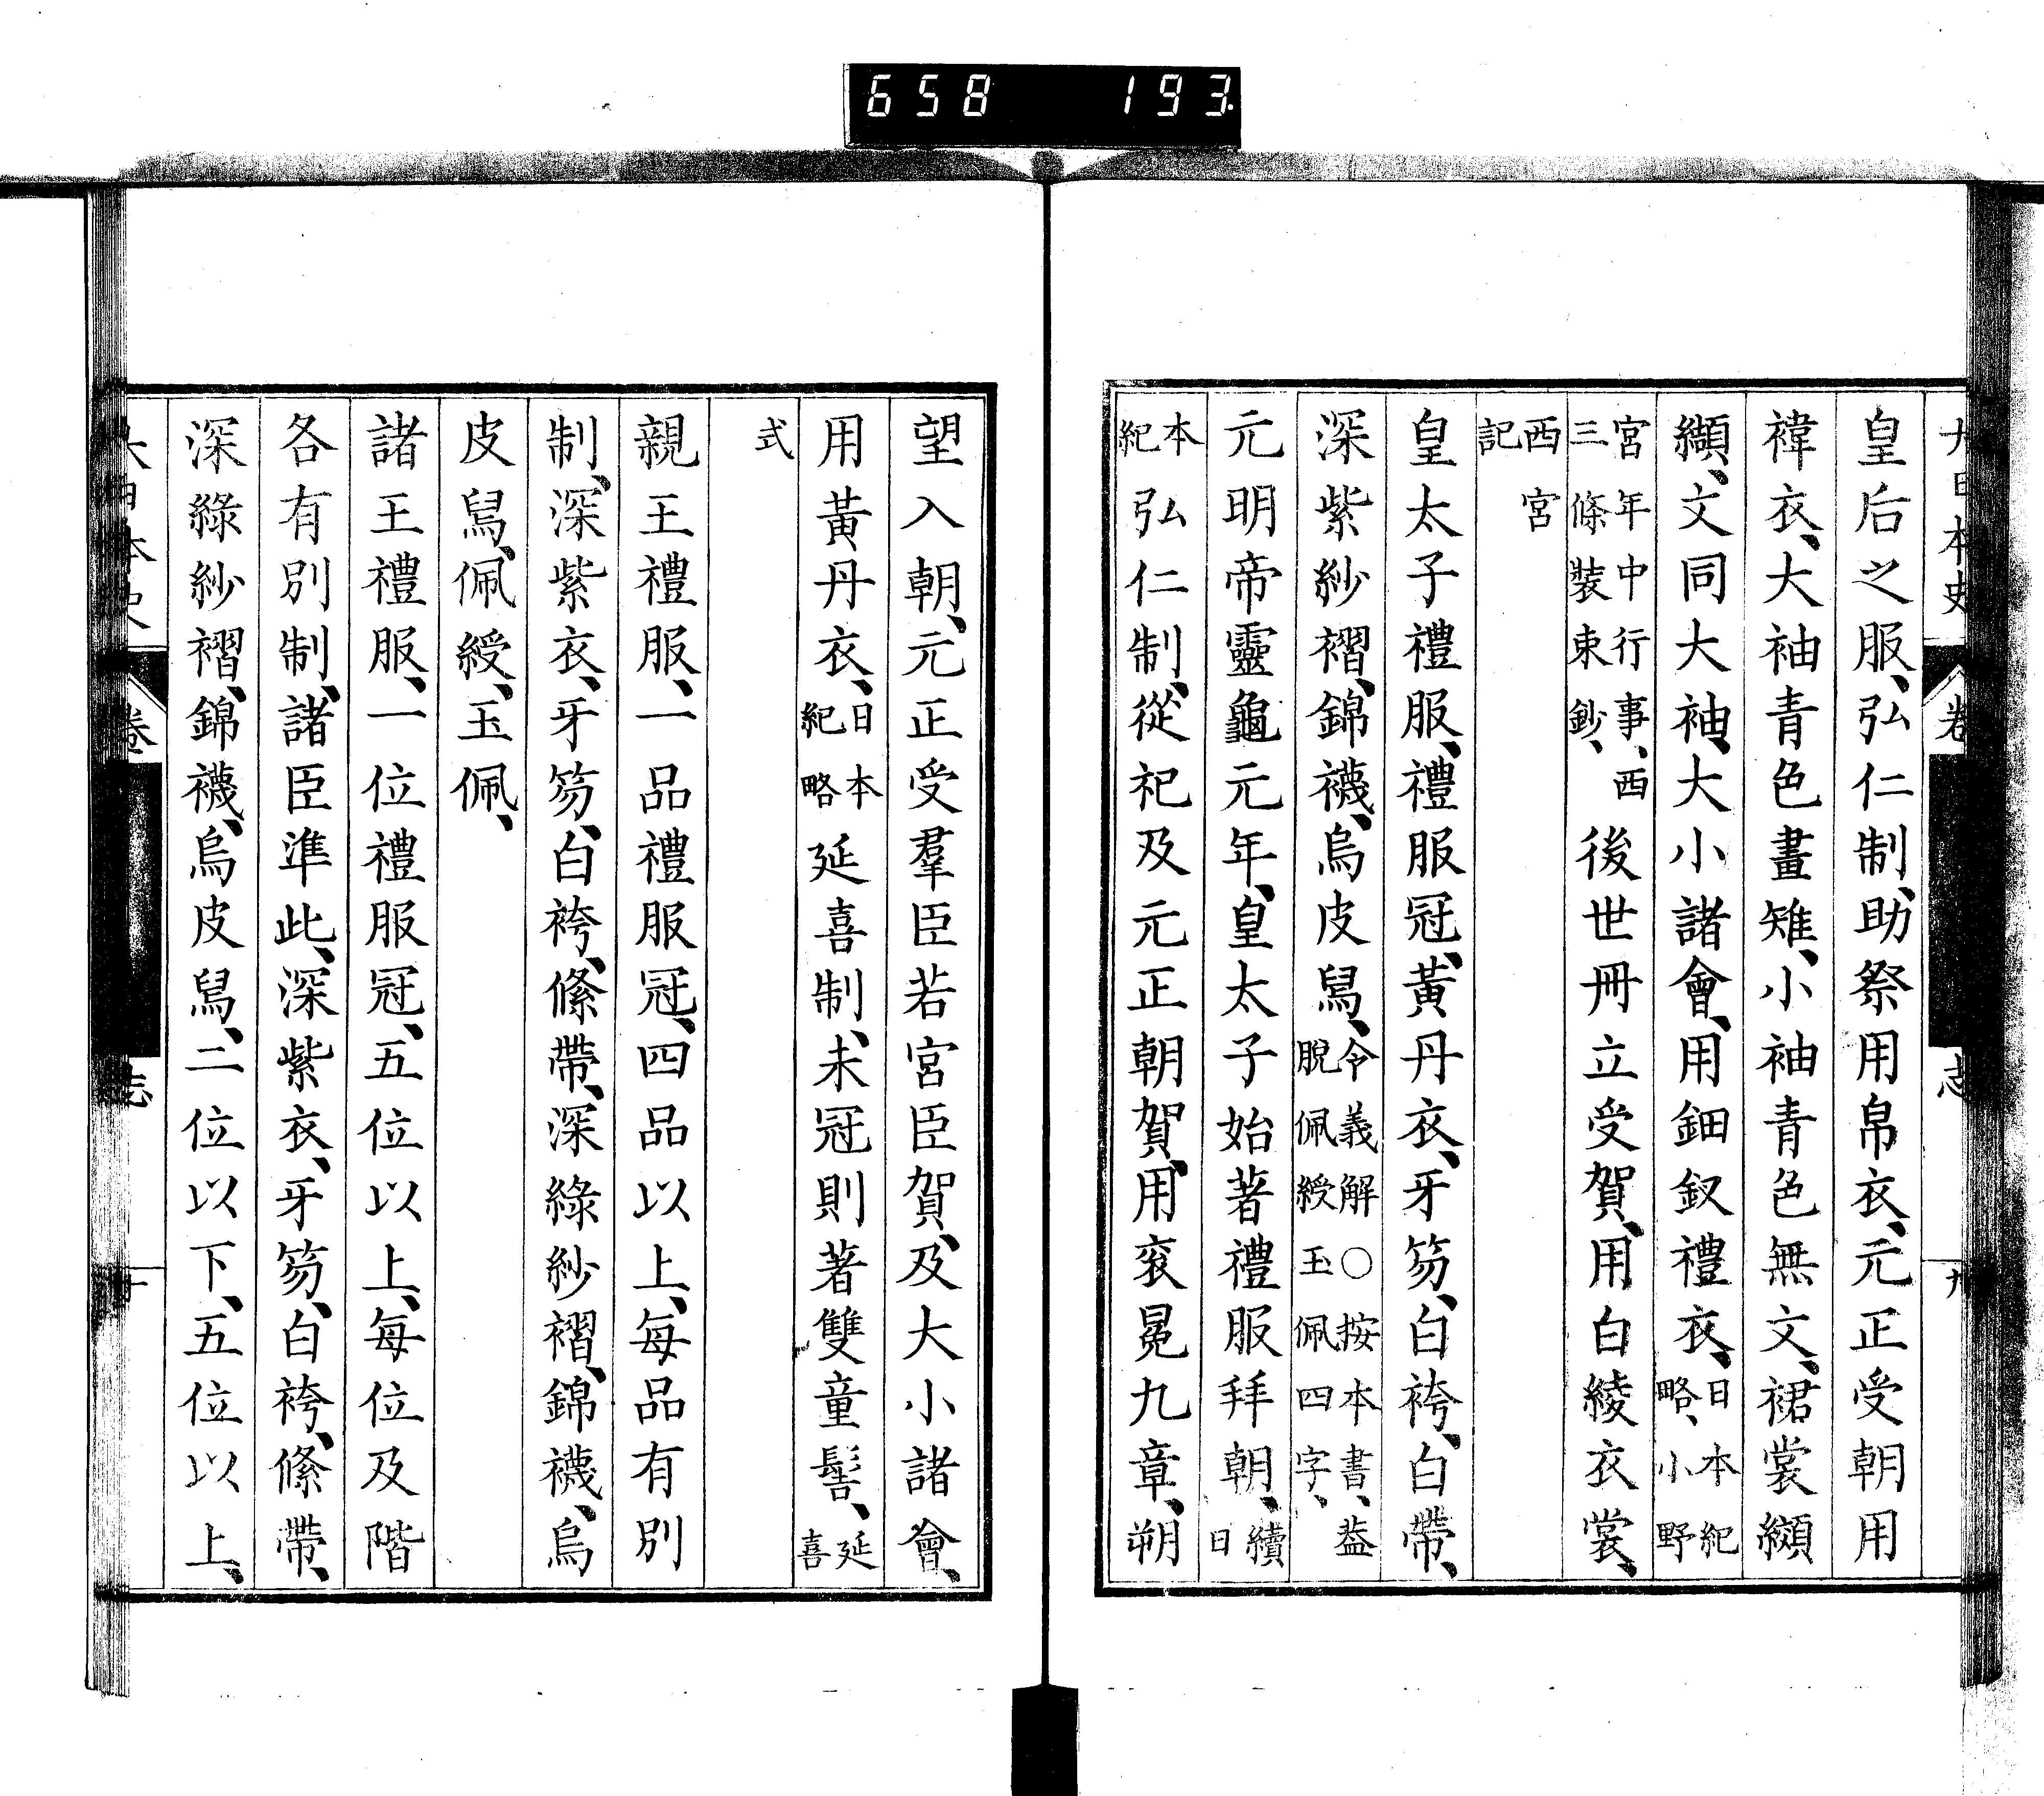 658 193
大日本史 卷 志 九
皇后之服、弘仁制、助祭用帛衣、元正受朝用
褘衣、大袖青色畫雉、小袖青色無文、裙裳纈
纈、文同大袖、大小諸會、用鈿釵禮衣、日本紀略、小野
宮年中行事、西三條裝束鈔、後世冊立受賀、用白綾衣裳、
西宮記
皇太子禮服、禮服冠、黃丹衣、牙笏、白袴、白帶、
深紫紗褶、錦襪、烏皮舄、令義解○按本書、蓋脫佩綬玉佩四字、
元明帝靈龜元年、皇太子始著禮服拜朝、續日
本紀弘仁制、從祀及元正朝賀、用袞冕九章、朔
望入朝、元正受羣臣若宮臣賀、及大小諸會、
用黃丹衣、日本紀略延喜制、未冠則著雙童髻、延喜
式
親王禮服、一品禮服冠、四品以上、每品有別
制、深紫衣、牙笏、白袴、絛帶、深綠紗褶、錦襪、烏
皮舄、佩綬、玉佩、
諸王禮服、一位禮服冠、五位以上、每位及階
各有別制、諸臣準此、深紫衣、牙笏、白袴、絛帶、
深綠紗褶、錦襪、烏皮舄、二位以下、五位以上、
大日本史 卷 志 十